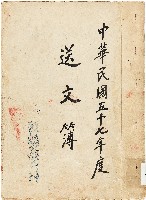 中華民國五十七年度
送文簿